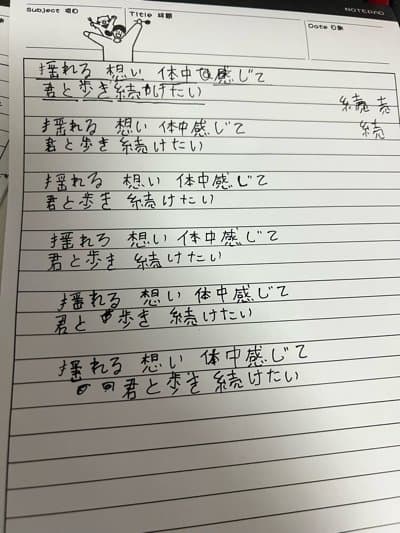 Subject 項目
Title 球題
Date 日期
NOTEPAD
揺れる 想い 体中感じて
君と歩き続けたい
続 売
続
揺れる 想い 体中感じて
君と歩き 続けたい
揺れる 想い 体中感じて
君と歩き 続けたい
揺れろ 想い 体中感じて
君と歩き 続けたい
揺れる 想い 体中感じて
君と 歩き 続けたい
揺れる 想い 体中感じて
君と歩き 続けたい